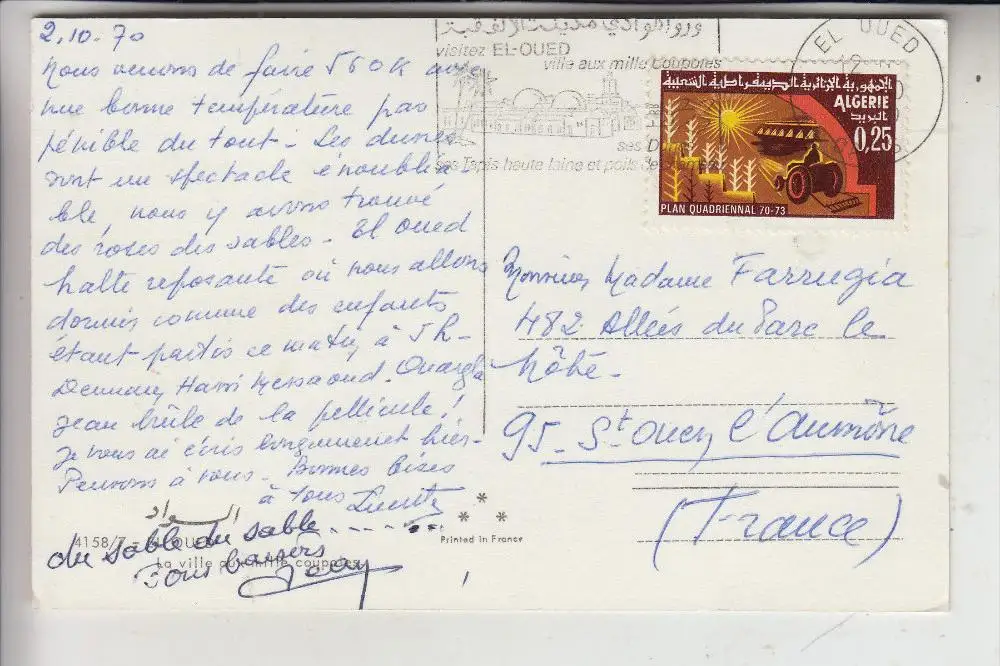 2.10.70
Nous venons de faire 560K avec
une bonne température pas
pénible du tout - Les dunes
sont un spectacle énoublia
ble, nous y avons trouvé
des roses des sables - El oued
halte reposante où nous allons
dormir comme des enfants
étant partis ce matin à 5h-
Demain, Hassi Messaoud. Ouargla
Jean brûle de la pellicule!
je vous ai écris longuement hier-
Pensons à vous - Bonnes bises
à tous
du sable du sable
Tous baisers
الـــواد
4158/7 - EL OUED
La ville aux mille coupoles
Printed in France
visitez EL-OUED
ville aux mille coupoles
ses Tapis haute laine et poils de
EL OUED
الجمهورية الجزائرية الديمقراطية الشعبية
ALGERIE
البريد
0,25
PLAN QUADRIENNAL 70-73
Monsieur Madame Farrugia
482 Allées du Parc le
Nôtre-
95 - St Ouen l'Aumône
(France)